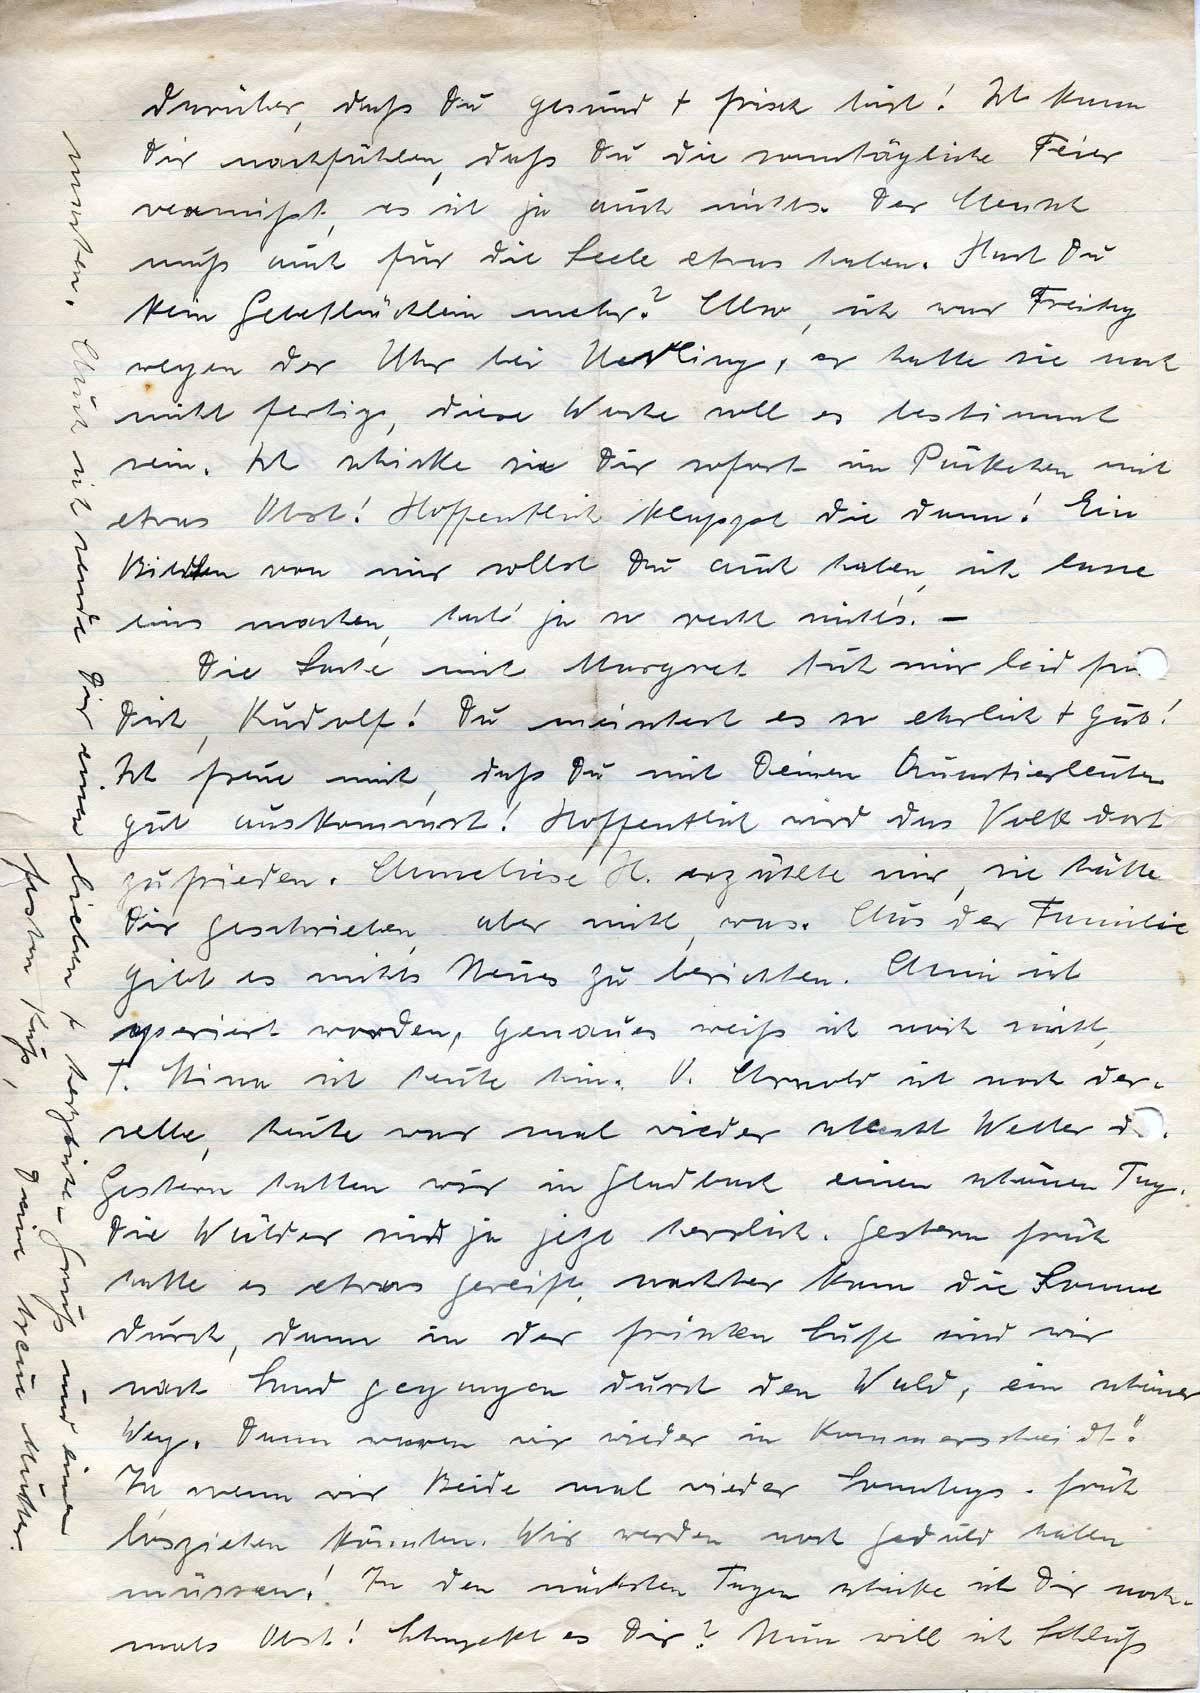 darüber, daß Du gesund + frisch bist! Ich kann
Dir nachfühlen, daß Du die sonntägliche Feier
vermißt, es ist ja auch nichts. Der Mensch
muß auch für die Seele etwas haben. Hast Du
kein Gebetbüchlein mehr? Also, ich war Freitag
wegen der Uhr bei, er hatte sie noch
nicht fertig, diese Woche soll es bestimmt
sein. Ich schicke sie Dir sofort im Päckchen mit
etwas Obst! Hoffentlich klappt die dann! Ein
Bildchen von mir sollst Du auch haben, ich lasse
eins machen, hab' ja so recht nichts. –
Die Sache mit Margret tut mir leid für
Dich, Rudolf! Du meintest es so ehrlich + gut!
Ich freue mich, daß Du mit Deinen Quartierleuten
gut auskommst! Hoffentlich wird das Volk dort
zufrieden. Anneliese H. erzählte mir, sie hätte
Dir geschrieben, aber nicht, was. Aus der Familie
gibt es nichts Neues zu berichten. Änni ist
operiert worden, genaues weiß ich noch nicht,
T. Mina ist heute hin. O. Arnold ist noch der-
selbe, heute war mal wieder schlecht Wetter da.
Gestern hatten wir in Gladbach einen schönen Tag.
Die Wälder sind ja jetzt herrlich. Gestern früh
hatte es etwas gereift, nachher kam die Sonne
durch, dann in der frischen Luft sind wir
nach gegangen durch den Wald, ein schöner
Weg. Dann waren wir wieder in Kommerscheidt."
Ja, wenn wir Beide mal wieder Sonntags-früh
losziehen könnten. Wir werden noch Geduld haben
müssen! In den nächsten Tagen schicke ich Dir noch-
mals Obst! Schmeckt es Dir? Nun will ich Schluß
machen. Auch ich sende Dir einen lieben + herzlichen Gruß und einen
festen Kuß, Deine treue Mutter.